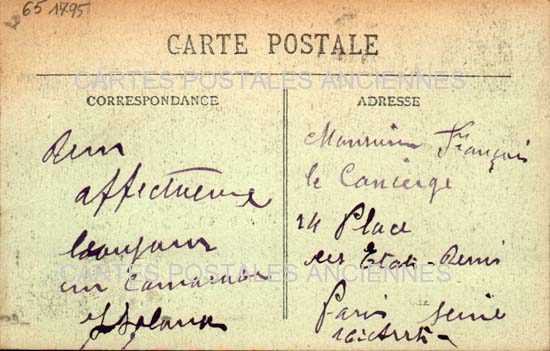 65 1795
CARTE POSTALE
CARTES POSTALES ANCIENNES
CORRESPONDANCE
affectueuse
un camarade
CARTES POSTALES ANCIENNES
ADRESSE
Monsieur François
le Concierge
14 Place
des Etats-Unis
Paris Seine